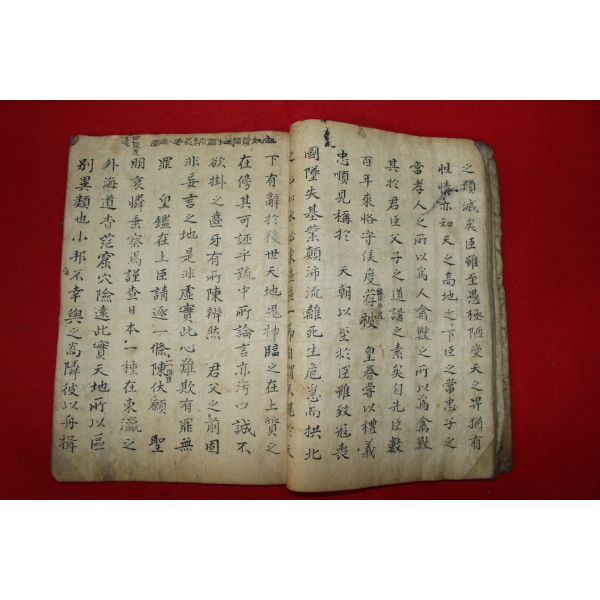 之類滅矣臣雖至愚極陋受天之畀猶有
性情亦知天之高地之下臣之當忠子之
當孝人之所以爲人禽獸之所以爲禽獸
其於君臣父子之道講之素矣自先臣數
百年來恪守侯度荐被 皇眷 以禮義
忠順見稱於 天朝以至於臣雖致寇喪
國墜失基業顚沛流離死生危急而拱北
之心如水必東區區一節自謂
下有辭於後世天地鬼神臨之在上質之
在傍其可誣乎疏中所論言亦污口誠不
欲掛之齒牙有所陳辨然 君父之前固
非妄言之地是非虛實此心難欺有罪無
罪 皇鑑在上臣請逐一條陳伏願 聖
明哀憐垂察焉謹查日本一種在東瀛之
外海道杳茫窟穴險遠此實天地所以區
別異類也小邦不幸與之爲隣彼以舟楫